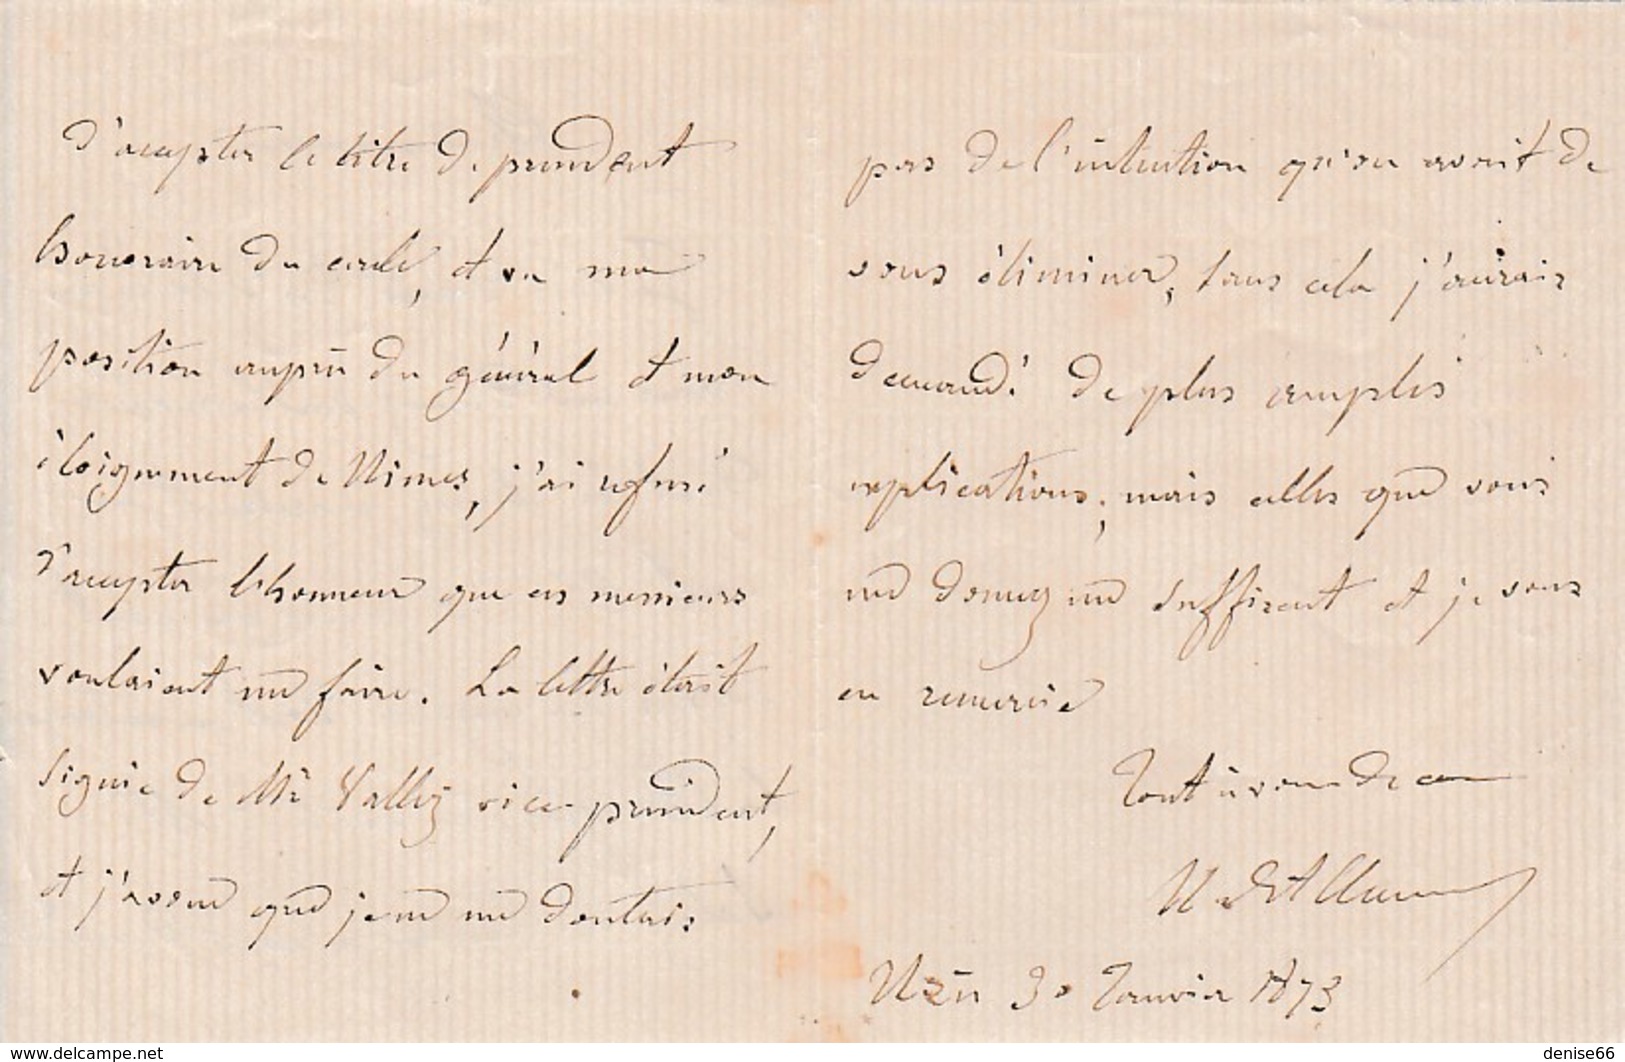 d'accepter le titre de president
honoraire du cercle, et vu ma
position auprès du général et mon
éloignement de Nimes, j'ai refusé
d'accepter l'honneur que ces messieurs
voulaient me faire. La lettre était
signée de Mr Vallez vice president,
et j'avoue que je ne me doutais
pas de l'intention qu'on avait de
vous éliminer, sans cela j'aurais
demandé de plus amples
explications; mais celles que vous
me donnez me suffisent et je vous
en remercie
Tout à vous de
Uzès 30 Janvier 1873
www.delcampe.net
denise66